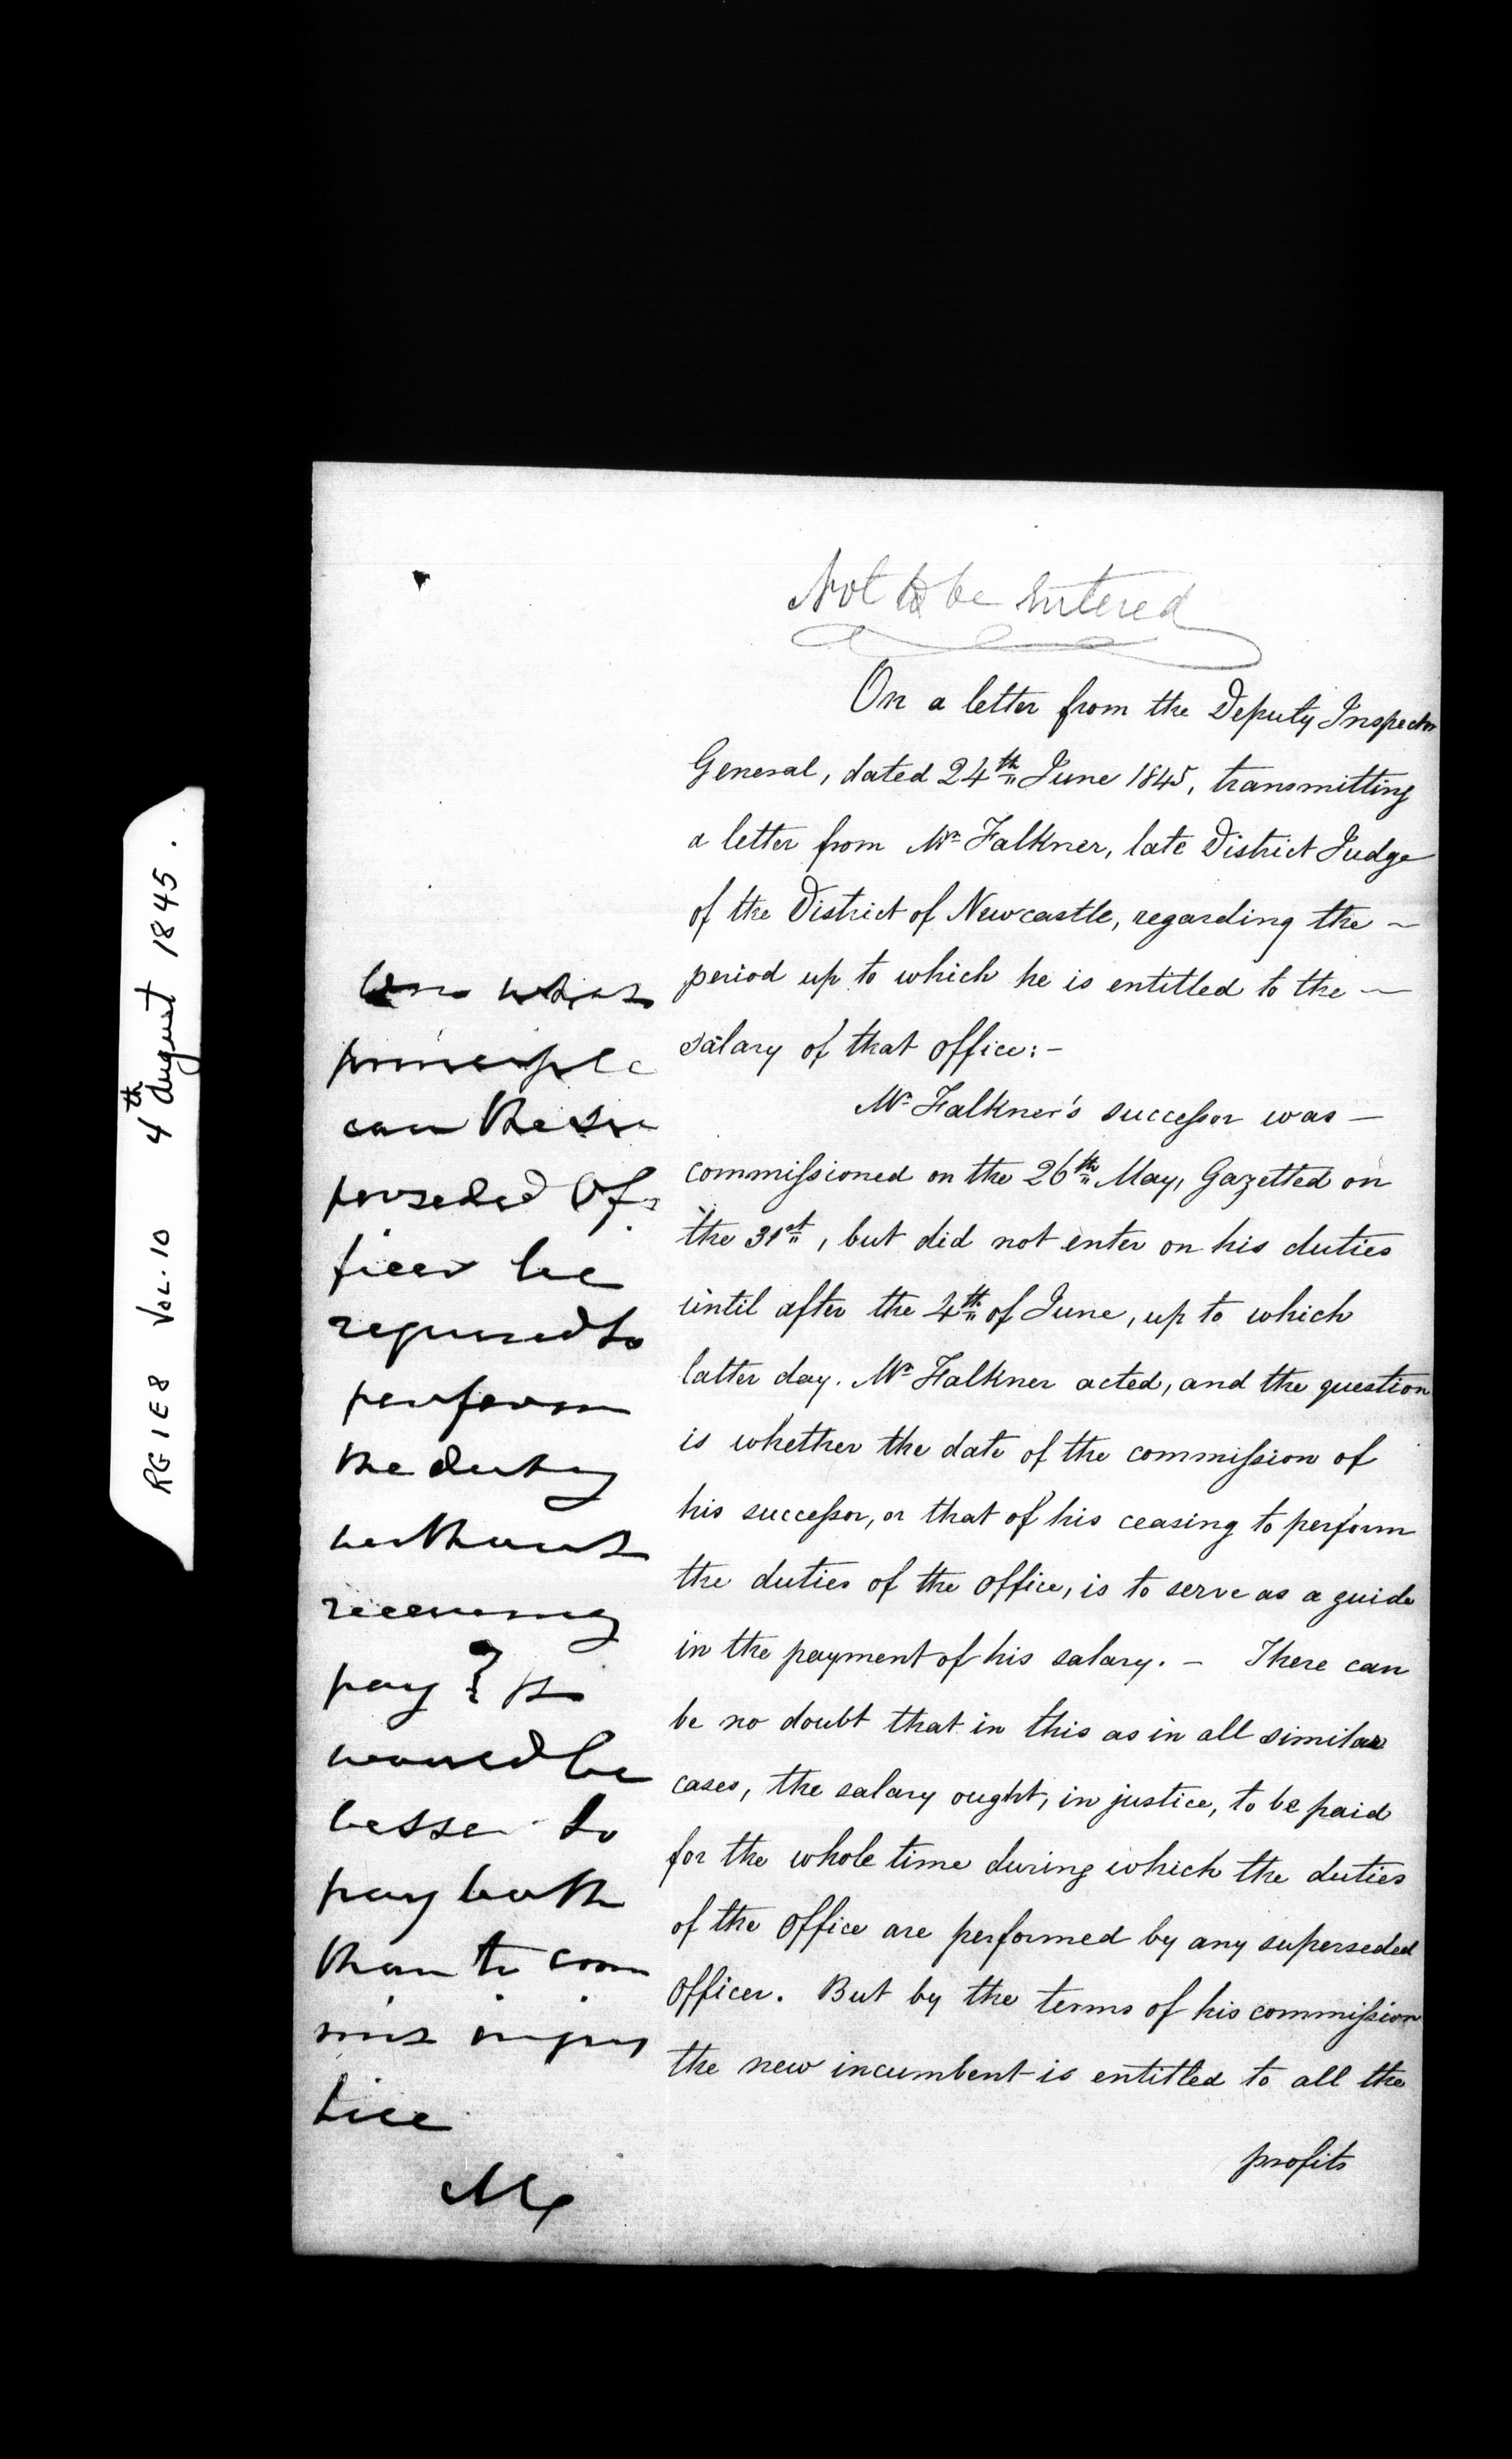 RG 1 E 8 Vol. 10 4th August 1845.
Not to be Entered
On a letter from the Deputy Inspector
General, dated 24th June 1845, transmitting
a letter from Mr Falkner, late District Judge
of the District of Newcastle, regarding the ~
period up to which he is entitled to the ~
salary of that office:-
Mr Falkner's successor was —
commissioned on the 26th May, Gazetted on
the 31st, but did not enter on his duties
until after the 4th of June, up to which
latter day. Mr Falkner acted, and the question
is whether the date of the commission of
his successor, or that of his ceasing to perform
the duties of the office, is to serve as a guide
in the payment of his salary. - There can
be no doubt that in this as in all similar
cases, the salary ought, in justice, to be paid
for the whole time during which the duties
of the office are performed by any superseded
officer. But by the terms of his commission
the new incumbent is entitled to all the
profits
On what
principle
can the su
perseded Of-
ficer be
required to
perform
the duty
without
receiving
pay? It
would be
better to
pay both
than to com
mit injus
tice